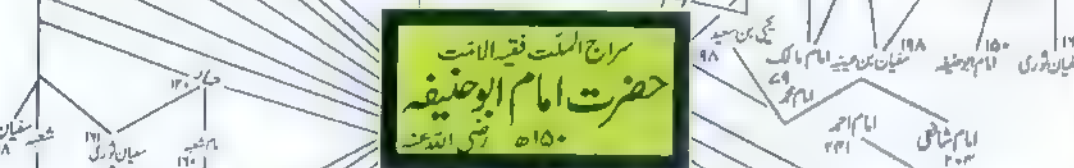 سراج الملّت فقیہ الامّت
حضرت امام ابو حنیفہ
۱۵۰ھ رضی اللہ عنہ
یحیٰی بن سعید
۹۸
امام مالک
۷۹
سفیان بن عیینہ
۱۹۸
امام ابو حنیفہ
۱۵۰
سفیان ثوری
۱۶
امام محمد
امام احمد
۲۴۱
امام شافعی
۲۰۴
حماد
۱۲۰
شعبہ
سفیان
سفیان ثوری
۱۶۱
امام شعبہ
۱۶۰